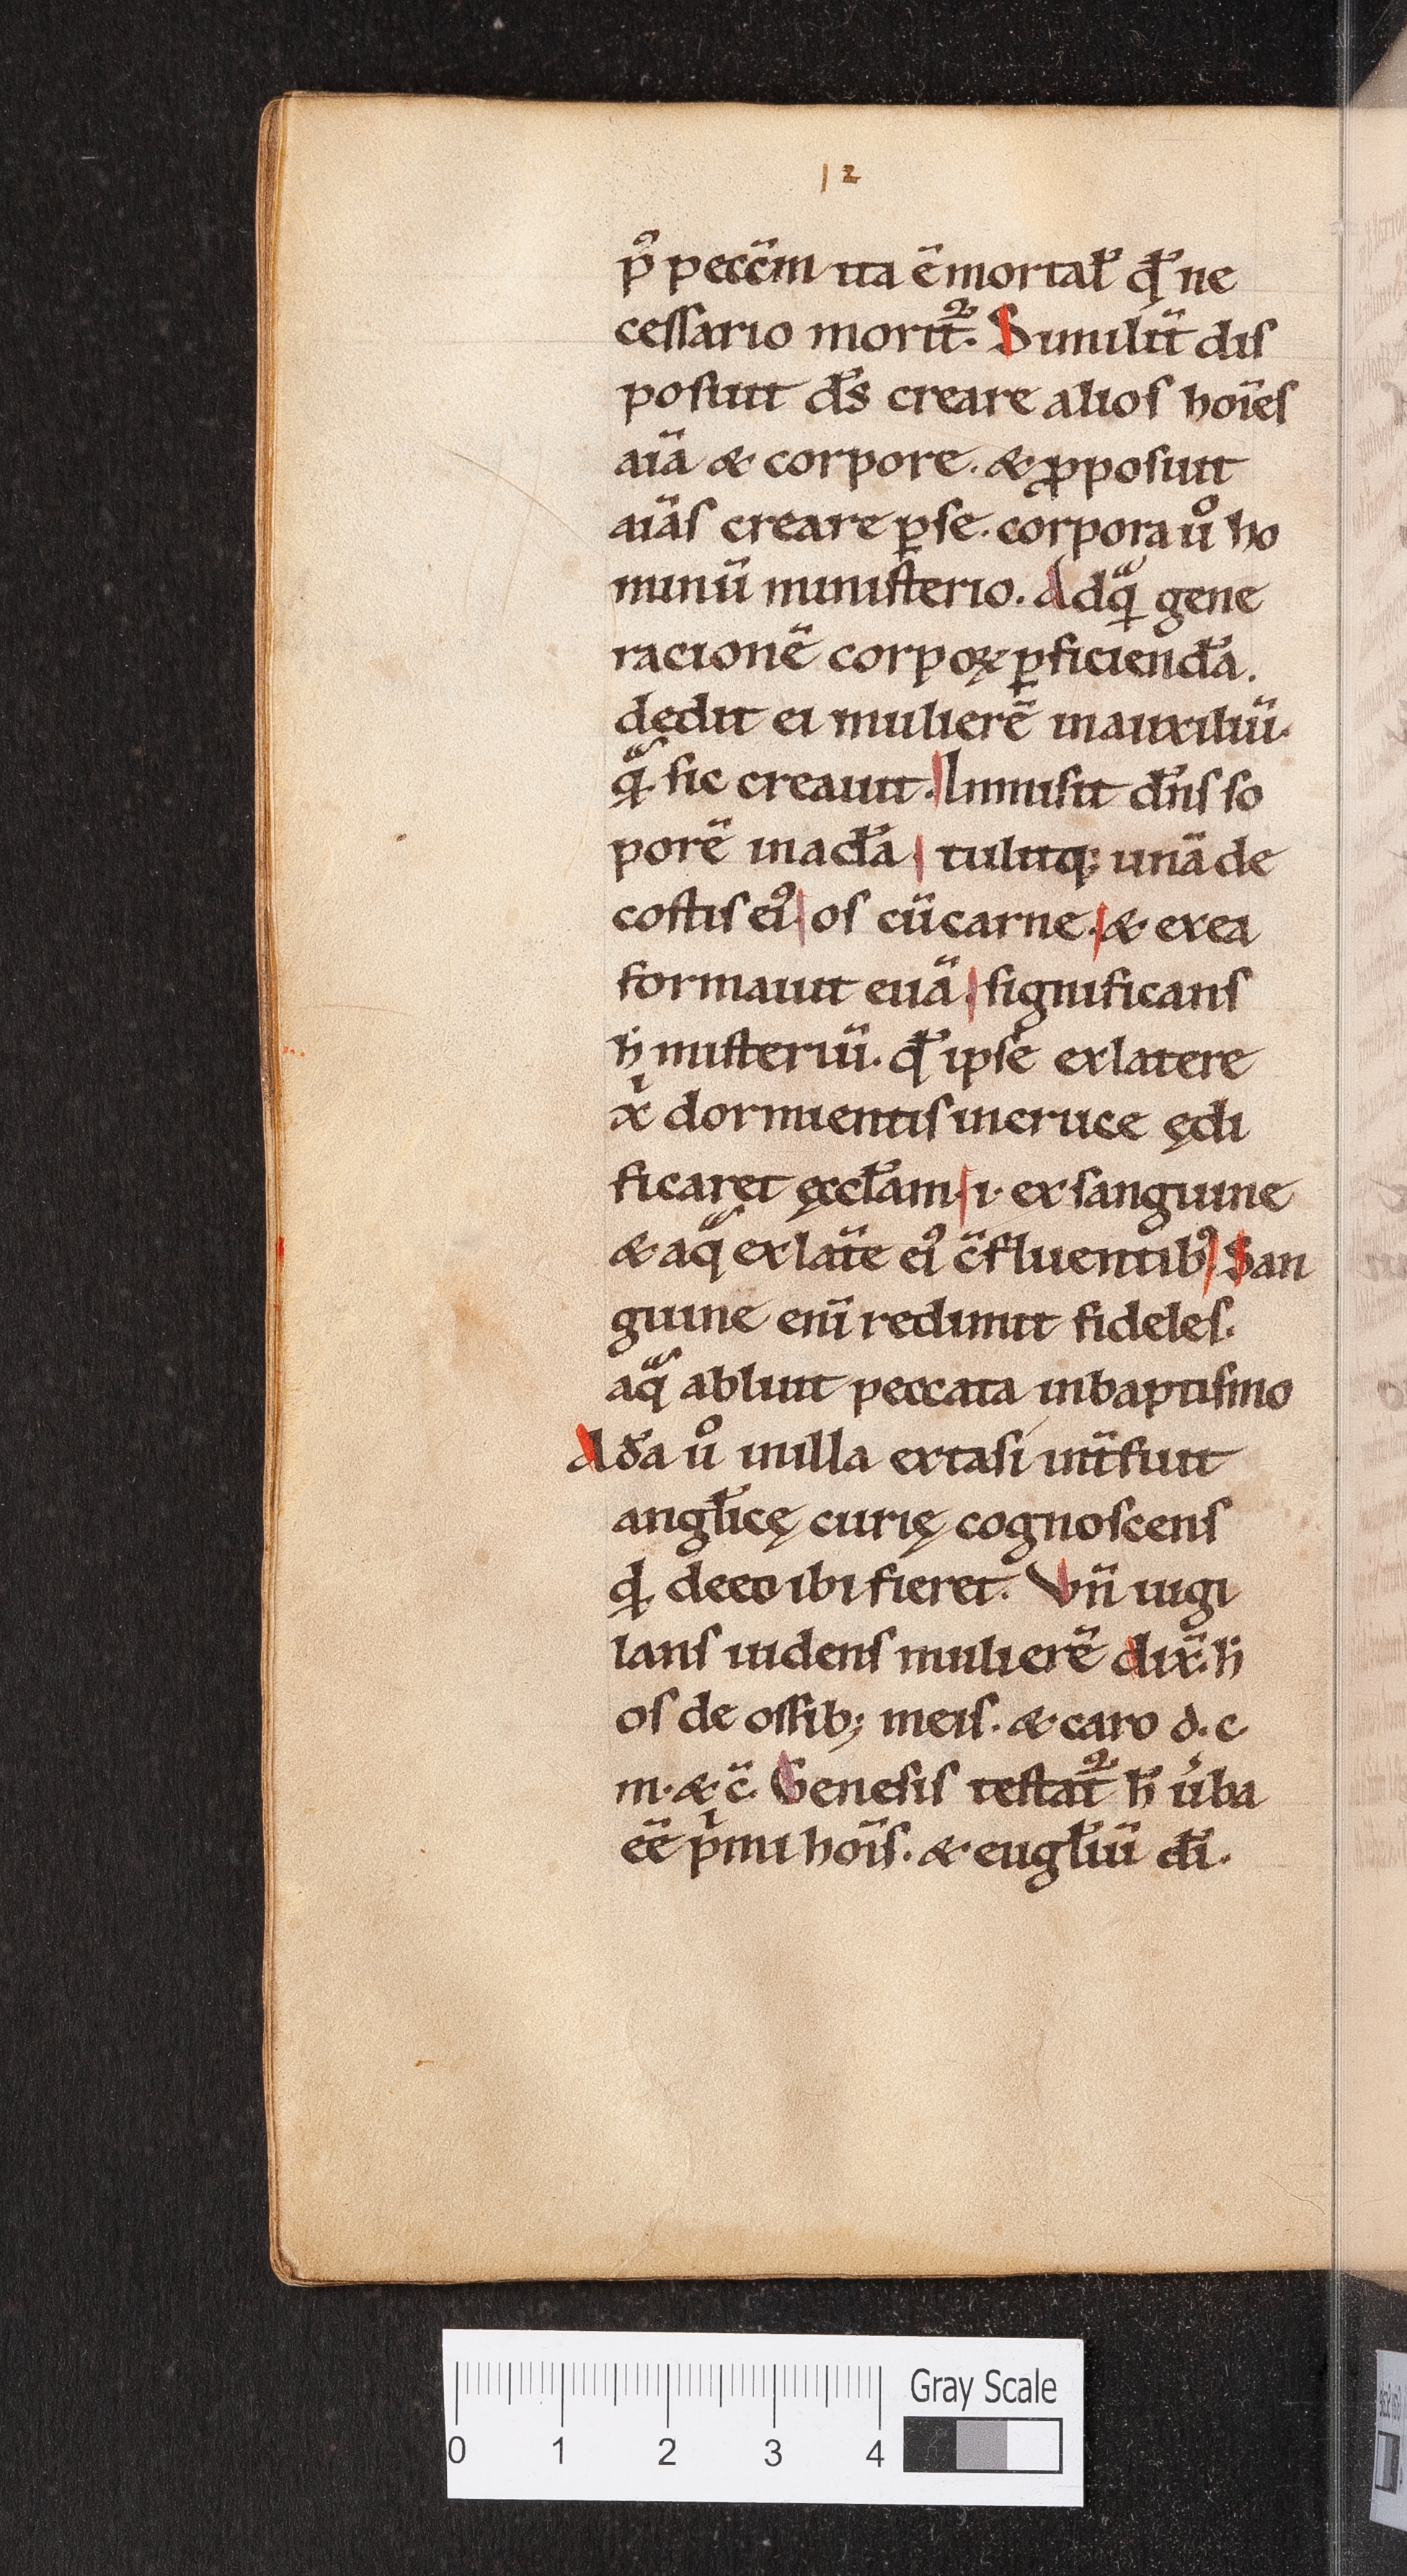 12
p᷒ pecc̄m ita ē mortał qđ ne
cessario morit᷑. Similit̄ dis
posuit d̄s creare alios hōıes
aı̄ā & corpore. & ꝓposuit
aı̄ās creare ꝑ se. corpora uͦ ho
minū ministerio. Ad qͣ gene
racionē corpoꝝ ꝑficienđa.
dedit ei mulierē in auxiliū.
qͣ sic creauit. Inmisit dn̄s so
porē in ađa tulitq; unā de
costis eiꝰ os cū carne. & ex ea
formauit euā significans
h̄ misteriū. qđ ipse ex latere
xͥ dormientis in cruce ędi
ficaret ęccłam .i. ex sanguine
& aqͣ ex lat̄e eiꝰ c̄fluentibꝰ. San
guine eni̅ redimit fideles.
aqͣ abluit peccata in baptismo
Ađa uͦ in illa extasi int̄fuit
angłicę curię cognoscens
qd̵ de eo ibi fieret. Vn̄ iugi
lans uidens mulierē dix̄. h̄
os de ossib; meis. & caro d. c.
m. & c̄. Genesis testat᷑ h̄ u̓ba
ēē pͥmi hōıs. & eugłiū đi.
0 1 2 3 4
Gray Scale